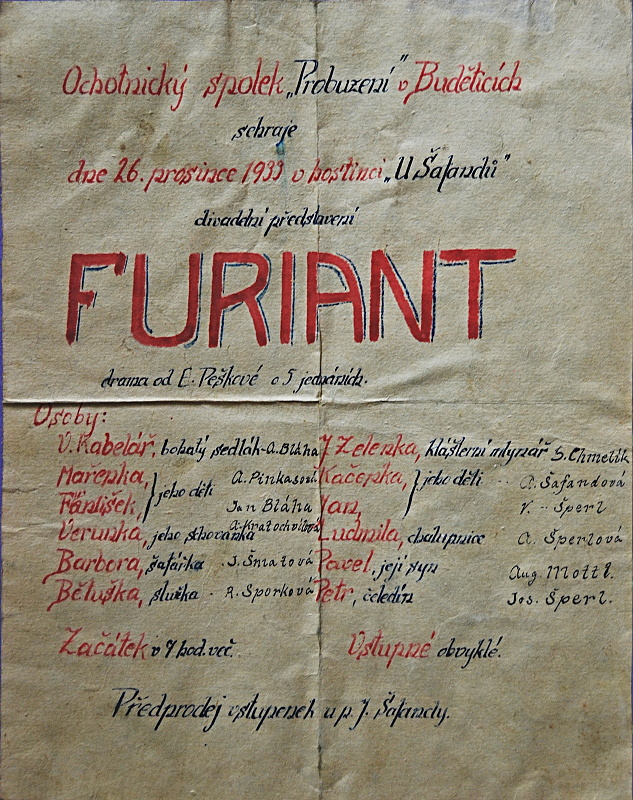 Ochotnický spolek „Probuzení" v Buděticích
sehraje
dne 26. prosince 1933 v hostinci „U Šafandů"
divadelní představení
FURIANT
drama od E. Peškové o 5 jednáních.
Osoby:
V. Kabelář, bohatý sedlák - A. Bláha
Mařenka, } jeho děti A. Pinkasová
František, Jan Bláha
Verunka, jeho schovanka A. Kratochvílová
Barbora, šafářka J. Šmatová
Bětuška, služka - R. Sporková
J Zelenka, klášterní mlynář S. Chmelík
Kačenka, } jeho děti - - A. Šafandová
Jan, V. - - Šperl
Ludmila, chalupnice A. Šperlová
Pavel, její syn Aug Mottl.
Petr, čeledín Jos. Šperl.
Začátek v 7 hod. več.
Vstupné obvyklé.
Předprodej vstupenek u p. J. Šafandy.